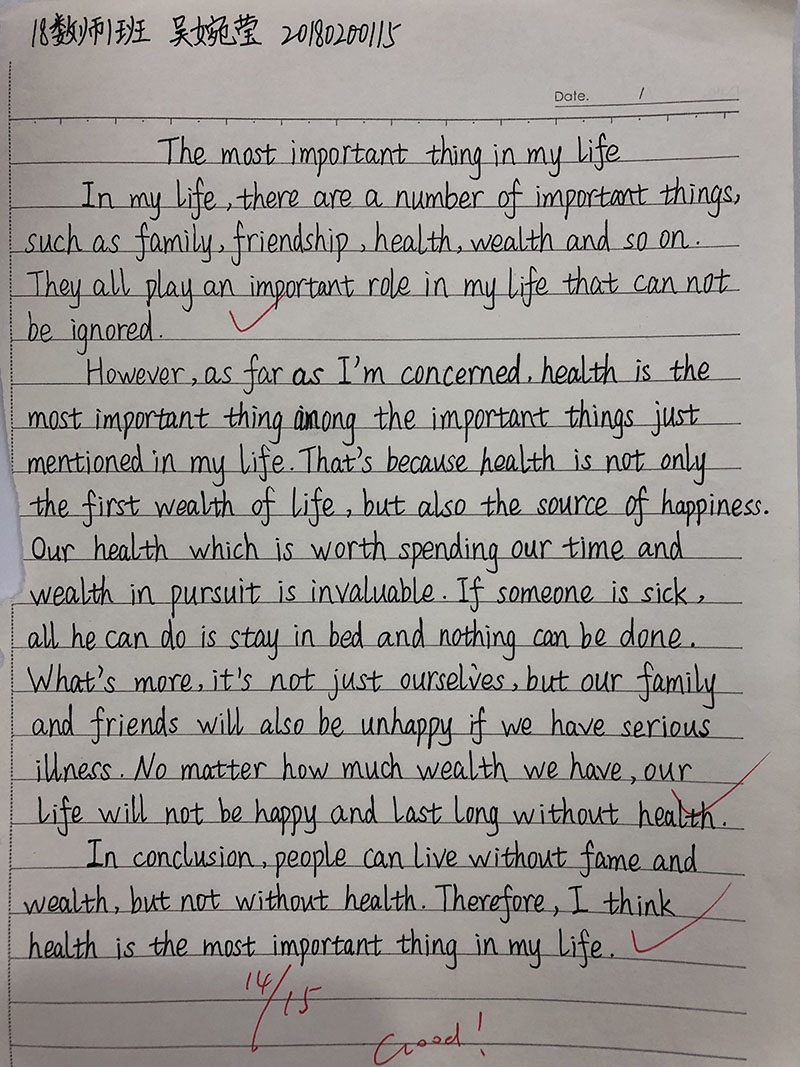 18数师1班 吴婉莹 20180200115
Date. /
The most important thing in my life
In my life, there are a number of important things,
such as family, friendship, health, wealth and so on.
They all play an important role in my life that can not
be ignored.
However, as far as I'm concerned, health is the
most important thing among the important things just
mentioned in my life. That's because health is not only
the first wealth of life, but also the source of happiness.
Our health which is worth spending our time and
wealth in pursuit is invaluable. If someone is sick,
all he can do is stay in bed and nothing can be done.
What's more, it's not just ourselves, but our family
and friends will also be unhappy if we have serious
illness. No matter how much wealth we have, our
life will not be happy and last long without health.
In conclusion, people can live without fame and
wealth, but not without health. Therefore, I think
health is the most important thing in my life.
14/15
Good!